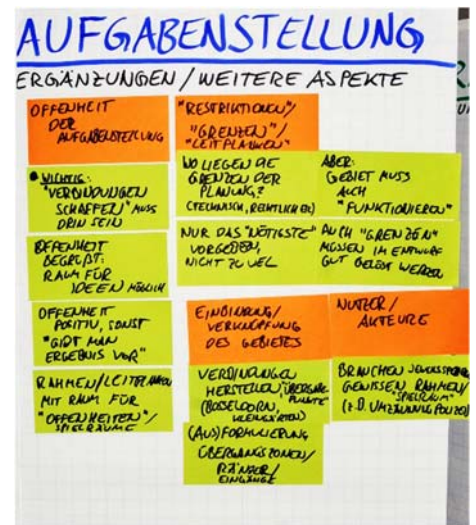 AUFGABENSTELLUNG
ERGÄNZUNGEN / WEITERE ASPEKTE
OFFENHEIT
DER
AUFGABENSTELLUNG
WICHTIG:
"VERBINDUNGEN
SCHAFFEN" MUSS
DRIN SEIN
OFFENHEIT
BEGRÜßT:
RAUM FÜR
IDEEN MÖGLICH
OFFENHEIT
POSITIV, SONST
"GIBT MAN
ERGEBNIS VOR"
RAHMEN/LEITPLANKEN
MIT RAUM FÜR
"OFFENHEITEN"/
SPIELRÄUME
"RESTRIKTIONEN"/
"GRENZEN"/
"LEITPLANKEN"
WO LIEGEN DIE
GRENZEN DER
PLANUNG?
(TECHNISCH, RECHTLICH ETC)
NUR DAS "NÖTIGSTE"
VORGEBEN,
NICHT ZU VIEL
ABER:
GEBIET MUSS
AUCH
"FUNKTIONIEREN"
AUCH "GRENZEN"
MÜSSEN IM ENTWURF
GUT GELÖST WERDEN
EINBINDUNG/
VERKNÜPFUNG
DES GEBIETES
VERBINDUNGEN
HERSTELLEN, ÜBERGANGSPUNKTE
(BOSSELDORN,
KLEINGÄRTEN)
(AUS)FORMULIERUNG
ÜBERGANGSZONEN/
RÄNDER/
EINGÄNGE
NUTZER/
AKTEURE
BRAUCHEN
GEWISSEN RAHMEN/
"SPIELRAUM"
(Z.B. UMZÄUNUNG POLIZEI)